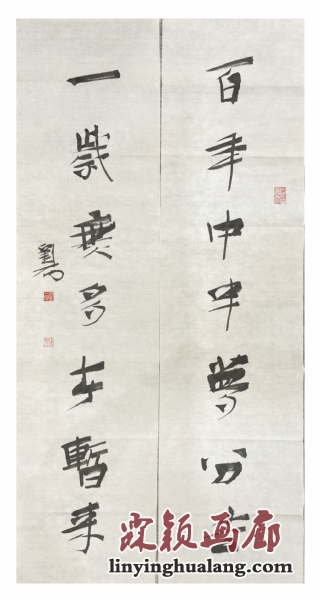 百年中半夢分去
一歲無多春暫来
霖颖画廊
linyinghualang.com